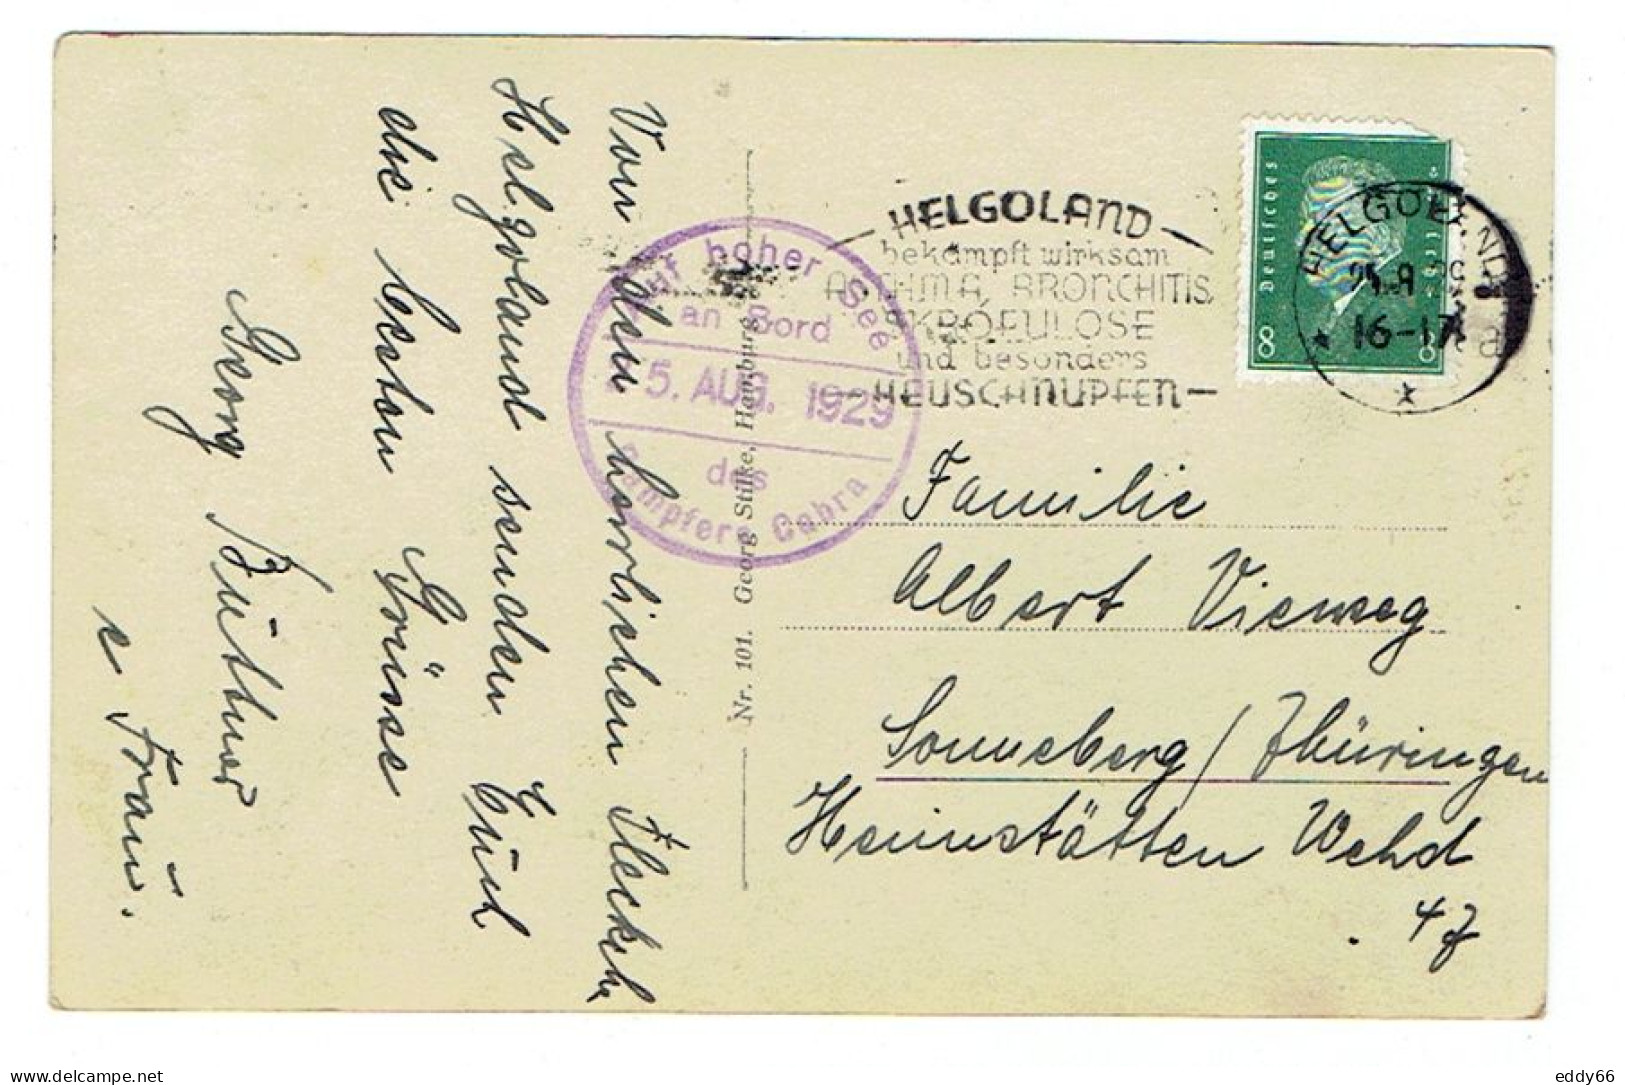 Von den herrlichen Fleckch.
Helgoland senden Euch
die besten Grüsse
Georg Büttner
u Frau.
Nr. 101. Georg Stilke, Hamburg
Auf hoher See
an Bord
5. AUG. 1929
des
Dampfers Cobra
HELGOLAND
bekämpft wirksam
ASTHMA BRONCHITIS
SKROFULOSE
und besonders
HEUSCHNUPFEN
Deutsches Reich
8 8
HELGOLAND
16-17
Familie
Albert Vieweg
Sonneberg/Thüringen
Heimstätten
eddy66